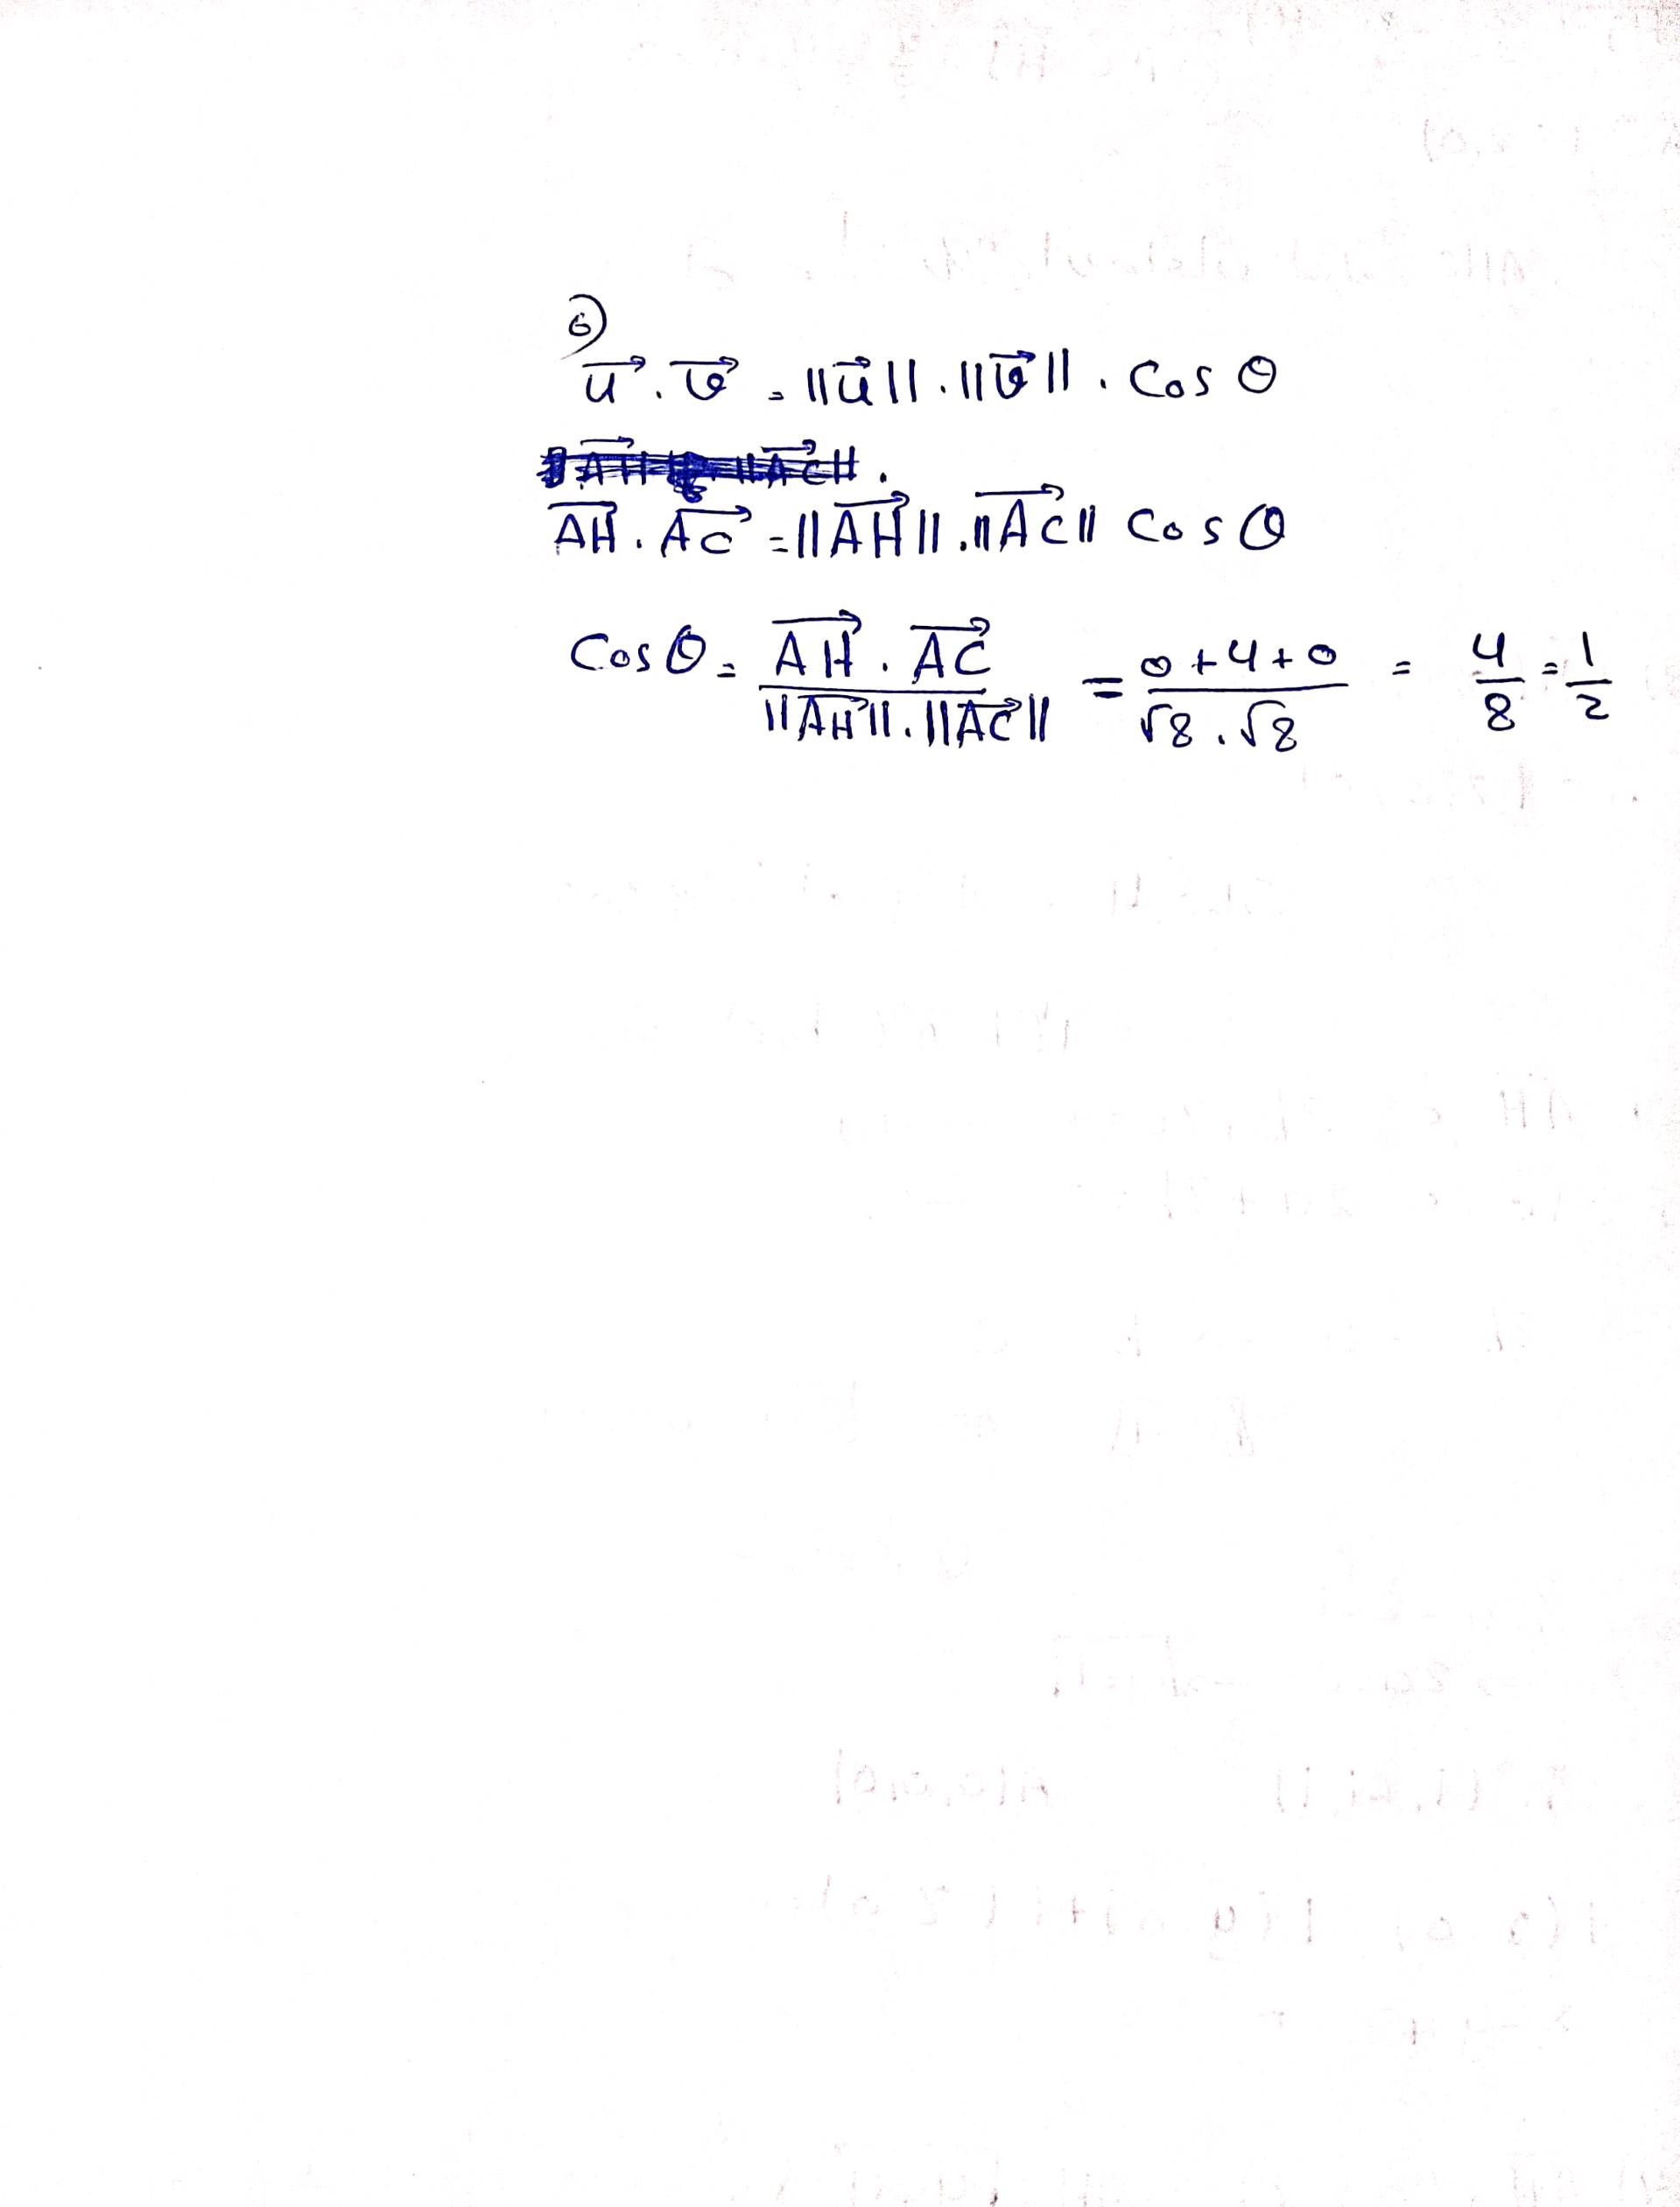 6)
u⃗ . v⃗ = ||u⃗|| . ||v⃗|| . Cos θ
AH⃗ . AC⃗ = ||AH⃗|| . ||AC⃗|| Cos θ
Cos θ = AH⃗ . AC⃗ / ||AH⃗|| . ||AC⃗|| = 0+4+0 / √8 . √8 = 4/8 = 1/2